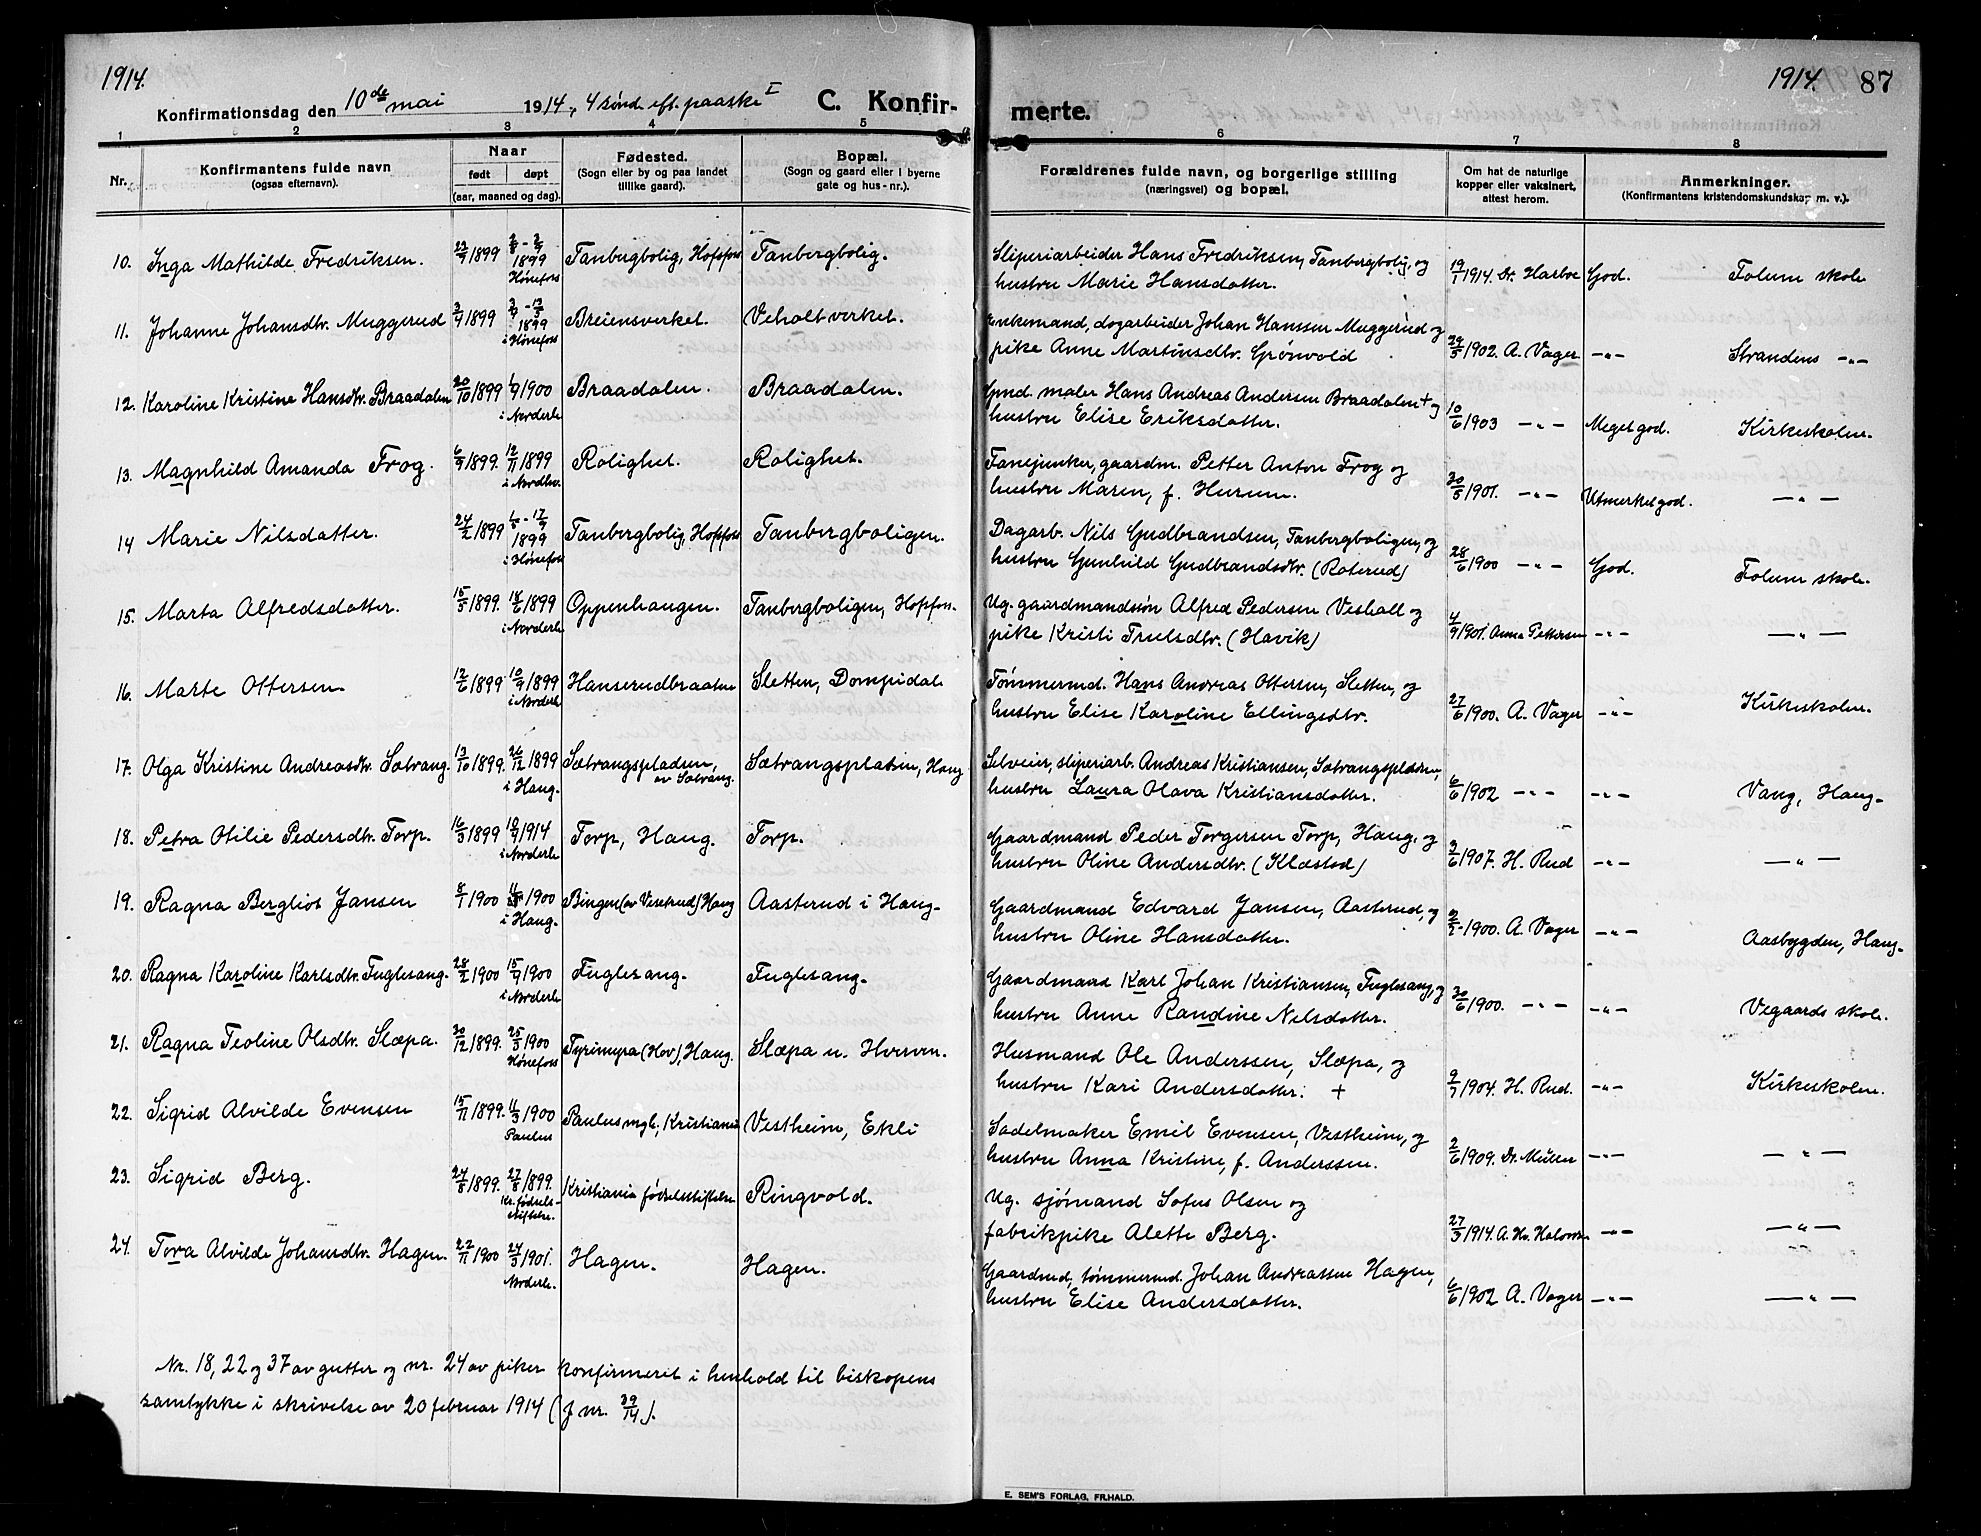 1914.
1914. 87
Konfirmationsdag den 10de mai 1914, 4 sønd. eft. paaske I C. Konfir-
merte.
1 2 3 4 5 6 7 8
Nr.
Konfirmantens fulde navn
(ogsaa efternavn).
Naar
født døpt
(aar, maaned og dag).
Fødested.
(Sogn eller by og paa landet
tillike gaard).
Bopæl.
(Sogn og gaard eller i byerne
gate og hus-nr.).
Forældrenes fulde navn, og borgerlige stilling
(næringsvei) og bopæl.
Om hat de naturlige
kopper eller vaksinert,
attest herom.
Anmerkninger.
(Konfirmantens kristendomskundskap m. v.).
10. Inga Mathilde Fredriksen. 1899 1899 Hønefoss Tanbergbolig, Hofsfoss Tanbergbolig.
Sliperiarbeider Hans Fredriksen, Tanbergbolig, og
hustru Marie Hansdatter. 19/1 1914. Dr. Harboe God. Follum skole
11. Johanne Johansdtr. Muggerud 1899 1899 i Hønefoss Breiensverket. Veholtverket.
Enkemand, dagarbeider Johan Hanssen Muggerud og
pike Anne Martinsdtr. Grønvold 29/5 1902. A. Vager -"- Strandens -"-
12. Karoline Kristine Hansdtr. Braadalen 20/10 1899 1/9 1900 i Norderh. Braadalen. Braadalen.
Gmd. maler Hans Andreas Andersen Braadalen + og
hustru Elise Eriksdatter. 10/6 1903 -"- Meget god. Kirkeskolen.
13. Magnhild Amanda Frog. 6/9 1899. 12/11 1899 i Nordhv. Rolighet. Rolighet.
Fanejunker, gaardm. Petter Anton Frog og
hustru Maren, f. Hurum. 30/5 1901. -"- Utmerket god. -"-
14 Marie Nilsdatter. 24/2 1899 1899 i Hønefoss Tanbergbolig, Hofsfoss Tanbergboligen.
Dagarb. Nils Gudbrandsen, Tanbergboligen, og
hustru Gunhild Gudbrandsdtr. (Roterud) 28/6 1900 -"- God. Follum skole.
15. Marta Alfredsdatter. 15/5 1899. 18/6 1899 i Norderh. Oppenhaugen. Tanbergboligen, Hofsfoss.
Ug. gaardmandssøn Alfred Pedersen Veshall og
pike Kristi Trulsdtr. (Havik) 4/9 1901. Anna Pettersen -"- -"-
16. Marte Ottersen 12/6 1899 10/9 1899 i Norderh. Hanserudbraaten Sletten, Dompidal
Tømmermd. Hans Andreas Ottersen, Sletten, og
hustru Elise Karoline Ellingsdtr. 27/6 1900. A. Vager -"- Kirkeskolen.
17. Olga Kristine Andreasdtr. Sætrang. 13/10 1899. 26/12 1899 i Haug. Sætrangspladsen, av Sætrang. Sætrangspladsen, Haug
Selveier, sliperiarb. Andreas Kristiansen, Sætrangspladsen,
hustru Laura Olava Kristiansdatter. 6/6 1902 -"- -"- Vang, Haug.
18. Petra Otilie Pedersdtr. Torp. 16/3 1899 10/9 1914 i Norderh. Torp, Haug. Torp.
Gaardmand Peder Torgersen Torp, Haug, og
hustru Oline Andersdtr. (Klæstad) 3/6 1907. H. Rud -"- -"-
19. Ragna Bergliot Jansen 8/1 1900 1900 i Haug. Bingen (av Vesetrud) Haug Aasterud i Haug.
Gaardmand Edvard Jansen, Aasterud, og
hustru Oline Hansdatter. 1900. A. Vager -"- Aasbygden, Haug.
20. Ragna Karoline Karlsdtr. Fuglesang. 28/2 1900 15/9 1900 i Norderh. Fuglesang. Fuglesang.
Gaardmand Karl Johan Kristiansen, Fuglesang, og
hustru Anne Randine Nilsdatter. 30/6 1900. -"- -"- Vegaards skole.
21. Ragna Teoline Olsdtr. Slæpa. 30/12 1899. 25/3 1900 Hønefoss Tyrimyra (Hov), Haug. Slæpa u. Hverven.
Husmand Ole Anderssen, Slæpa, og
hustru Kari Andersdatter. + 9/7 1904. H. Rud. -"- Kirkeskolen.
22. Sigrid Alvilde Evensen 15/11 1899. 11/3 1900 Paulus Paulus mgh., Kristiania Vestheim, Ekli
Sadelmaker Emil Evensen, Vestheim, og
hustru Anna Kristine, f. Anderssen. 2/6 1909. Dr. Müller -"- -"-
23. Sigrid Berg. 24/8 1899. 27/8 1899. Kr. fødselsstiftelse. Kristiania fødselsstiftelse Ringvold.
Ug. sjømand Sofus Olsen og
fabrikpike Alette Berg. 27/3 1914. -"- -"-
24. Tora Alvilde Johansdtr. Hagen. 22/11 1900 24/3 1901. Norderh. Hagen. Hagen.
Gaardmd, tømmermd. Johan Andreassen Hagen,
hustru Elise Andersdatter. 6/6 1902 A. Vager -"- -"-
Nr. 18, 22 og 37 av gutter og nr. 24 av piker konfirmeret i henhold til biskopens
samtykke i skrivelse av 20 februar 1914 (J nr. 39/14).
E. SEM'S FORLAG, FR.HALD.